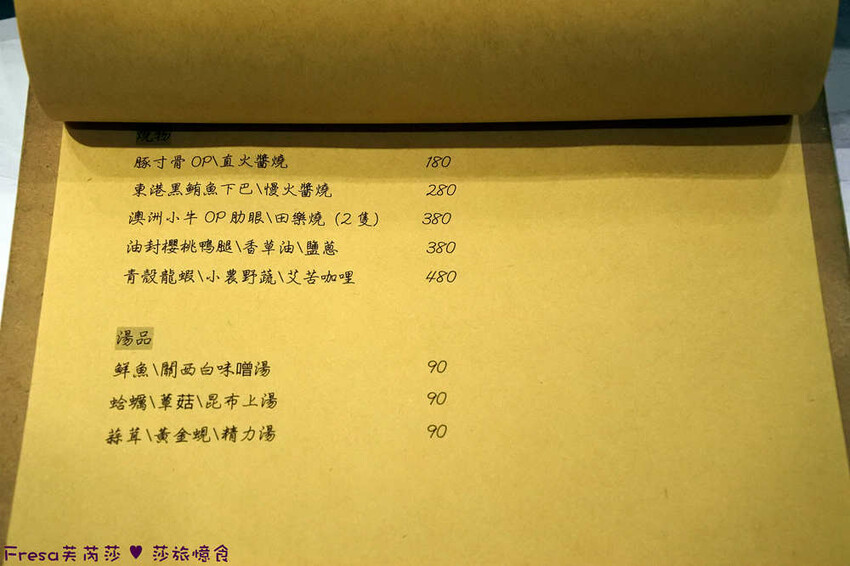 燒物
豚寸骨OP\直火醬燒 180
東港黑鮪魚下巴\慢火醬燒 280
澳洲小牛OP肋眼\田樂燒(2隻) 380
油封櫻桃鴨腿\香草油\鹽蔥 380
青殼龍蝦\小農野蔬\艾苦咖哩 480
湯品
鮮魚\關西白味噌湯 90
蛤蠣\蕈菇\昆布上湯 90
蒜茸\黃金蜆\精力湯 90
Fresa芙芮莎♥莎旅憶食